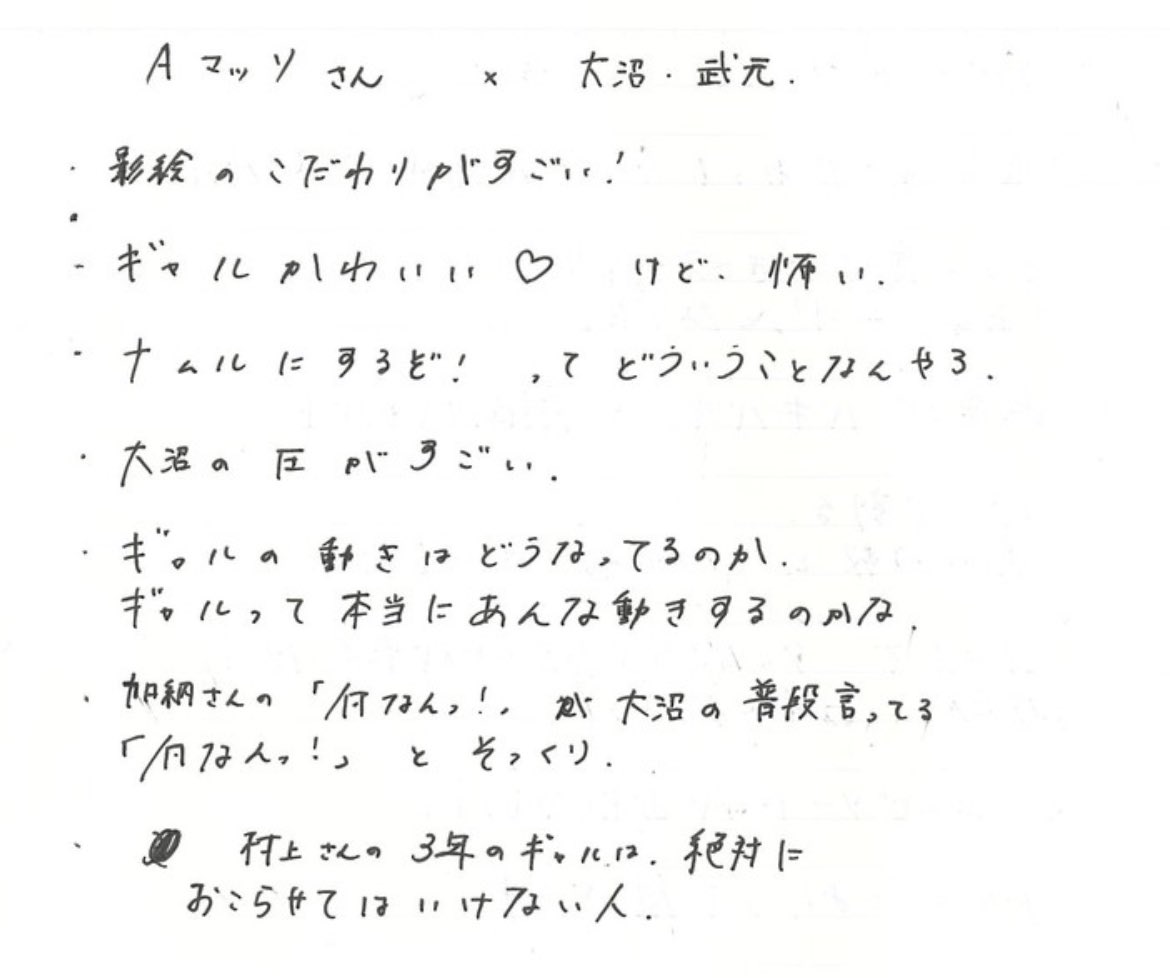 Aマッソさん × 大沼・武元.
・影絵のこだわりがすごい!
・
・ギャルかわいい♡ けど、怖い.
・ナムルにするぞ! ってどういうことなんやろ.
・大沼の圧がすごい.
・ギャルの動きはどうなってるのか.
ギャルって本当にあんな動きするのかな.
・加納さんの「何なんっ!」が大沼の普段言ってる
「何なんっ!」とそっくり.
・村上さんの3年のギャルは、絶対に
おこらせてはいけない人.